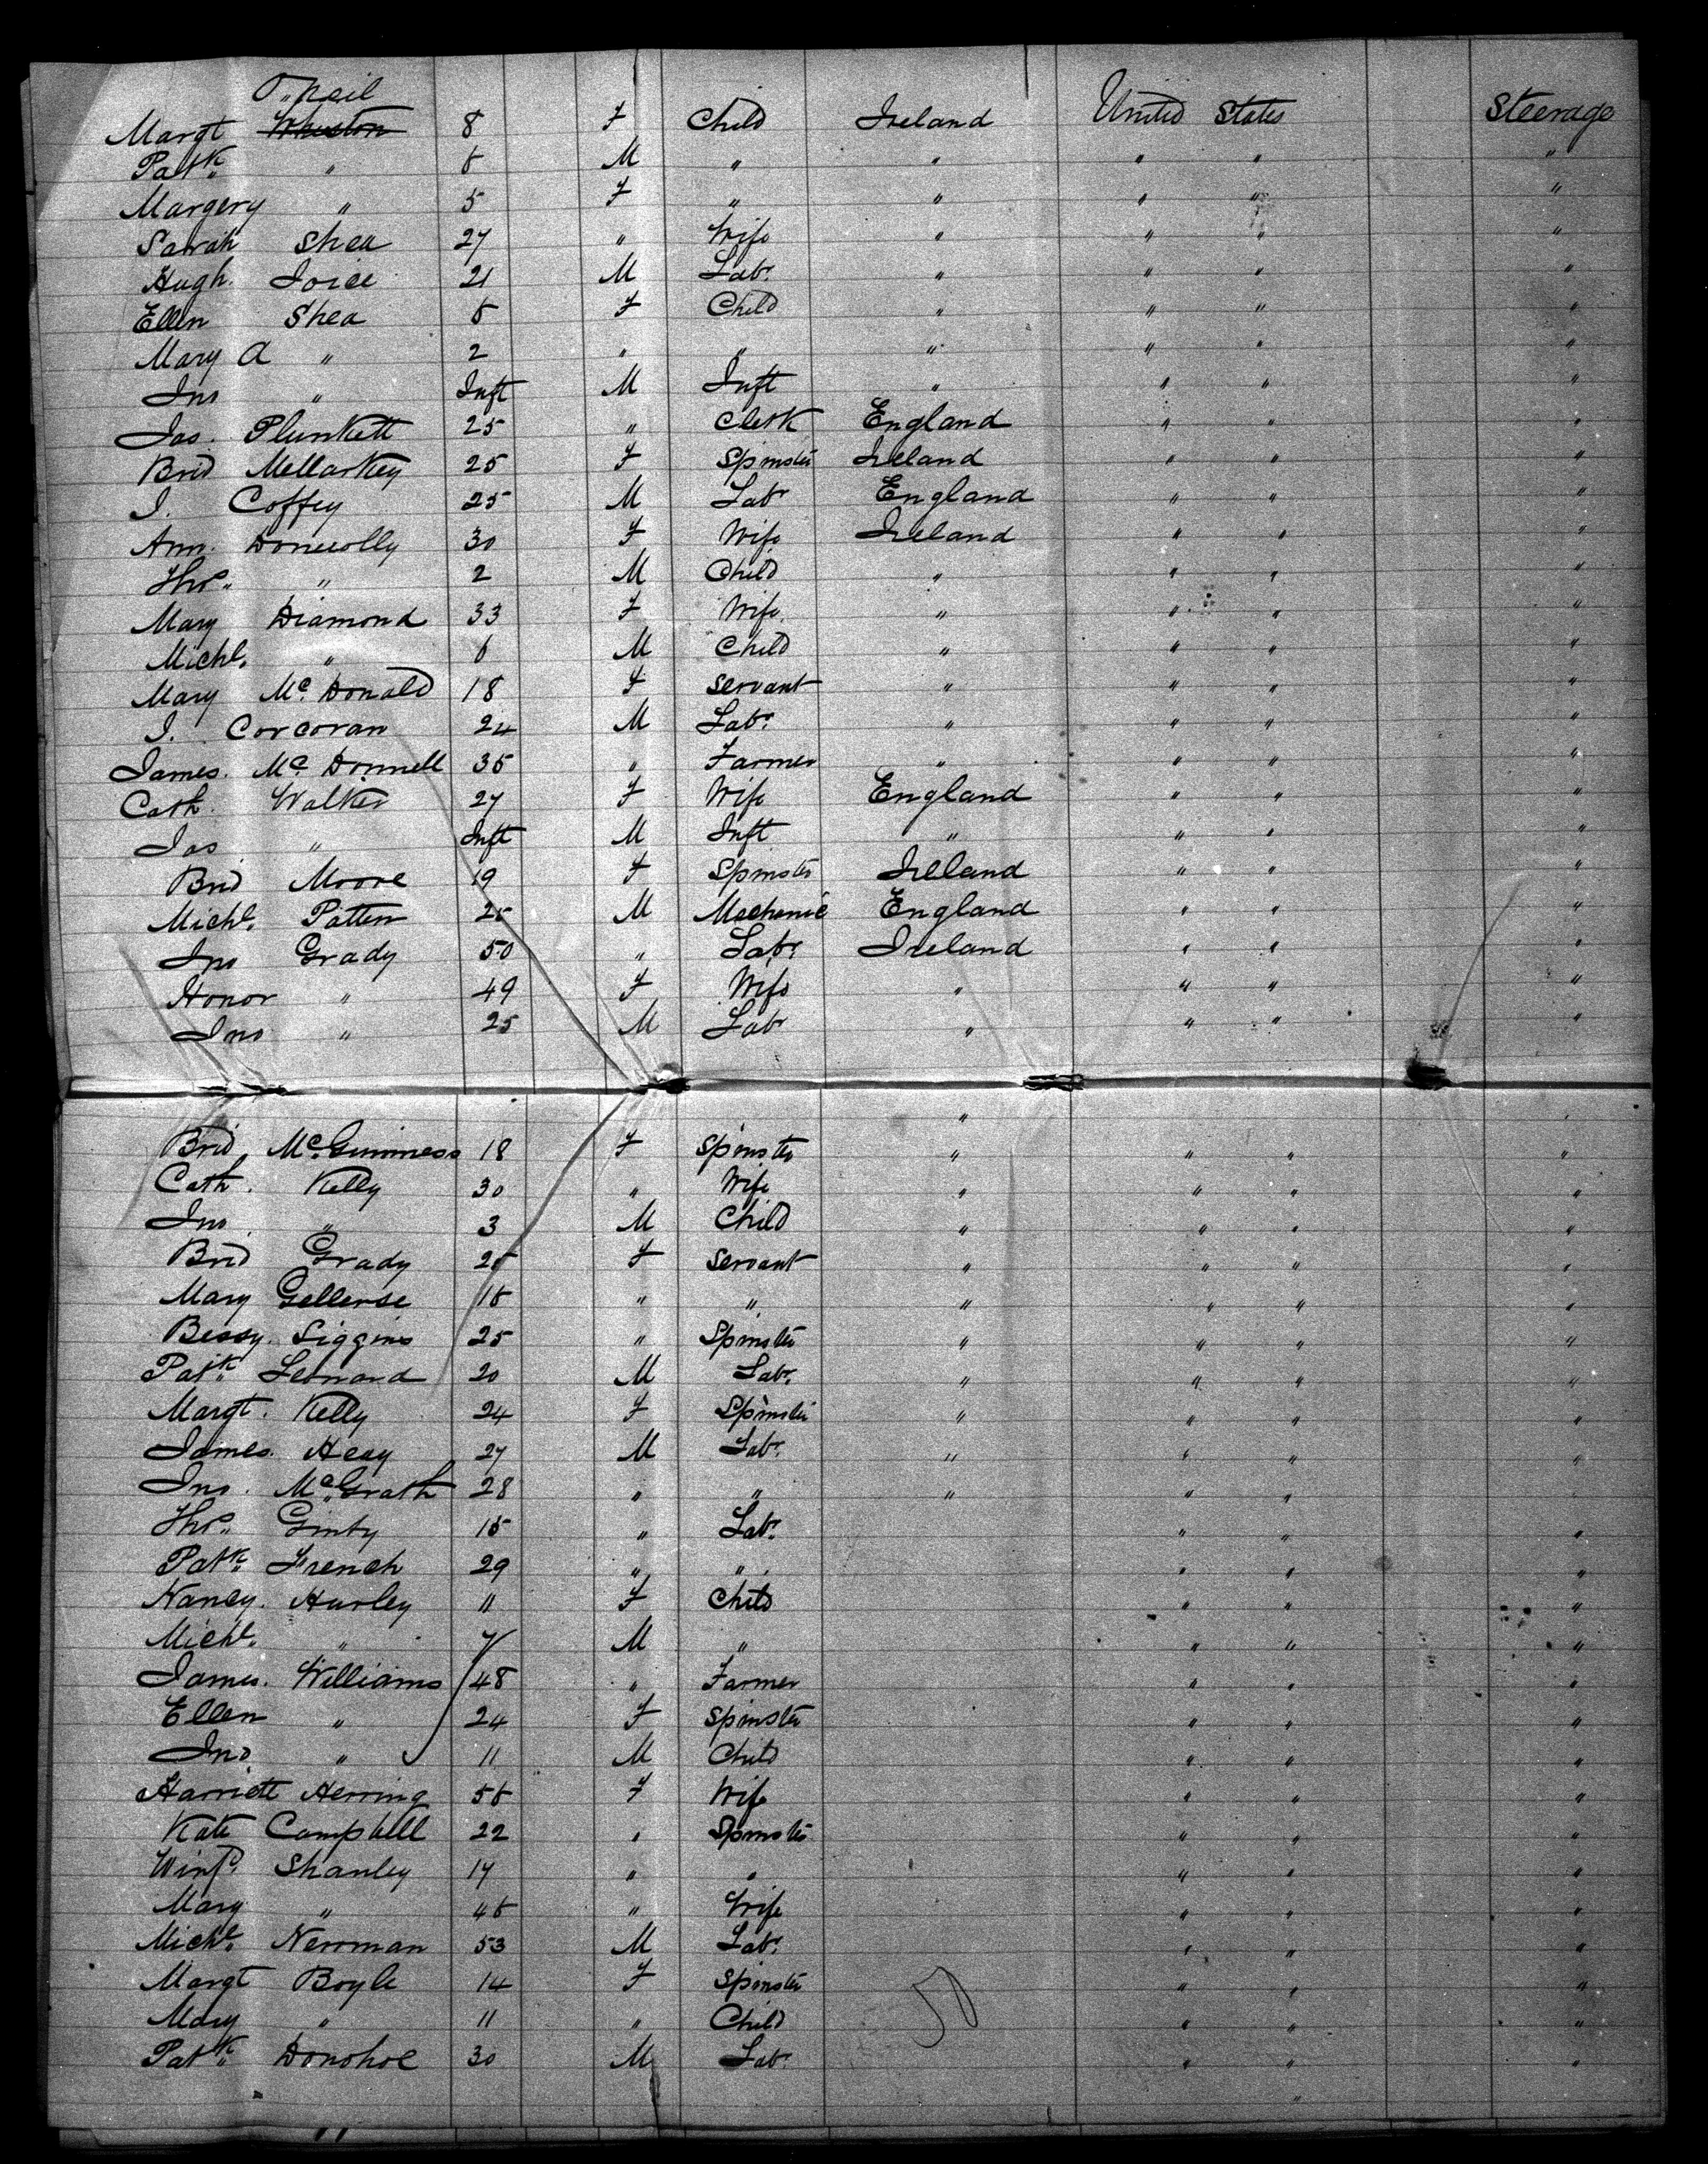 O'Neil
Margt Whiston 8 F Child Ireland United States Steerage
Patk " 6 M " " " " "
Margery " 5 F " " " " "
Sarah Shea 27 " Wife " " " "
Hugh Joice 21 M Labr " " " "
Ellen Shea 6 F Child " " " "
Mary A " 2 " " " " " "
Jno " Inft M Inft " " " "
Jas. Plunkett 25 " Clerk England " " "
Brid Mellarkey 25 F Spinster Ireland " " "
J. Coffey 25 M Labr England " " "
Ann. Donnolly 30 F Wife Ireland " " "
Thos " 2 M Child " " " "
Mary Diamond 33 F Wife " " " "
Michl. " 6 M Child " " " "
Mary Mc.Donald 18 F Servant " " " "
J. Corcoran 24 M Labr " " " "
James. Mc.Donnell 35 " Farmer " " " "
Cath. Walker 27 F Wife England " " "
Jas " Inft M Inft " " " "
Brid Moore 19 F Spinster Ireland " " "
Michl. Patten 25 M Mechanic England " " "
Jno Grady 50 " Labr Ireland " " "
Honor " 49 F Wife " " " "
Jno " 25 M Labr " " " "
" "
Brid Mc.Guinness 18 F Spinster " " " "
Cath. Kelly 30 " Wife " " " "
Jno " 3 M Child " " " "
Brid Grady 25 F Servant " " " "
Mary 16 " " " " " "
Bessy. Liggins 25 " Spinster " " " "
Patk Leonard 20 M Labr. " " " "
Margt. Kelly 24 F Spinster " " " "
James. Heay 27 M Labr. " " " "
Jno. McGrath 28 " " " " "
Thos. Ginty 15 " Labr. " " "
Patk. French 29 " " " " "
Nancy. Hurley 11 F Child " " "
Michl. " 7 M " " " "
James. Williams 48 " Farmer " " "
Ellen " 24 F Spinster " " "
Jno " 11 M Child " " "
Harriett Herring 56 F Wife " " "
Kate Campbell 22 " Spinster " " "
Winfd. Shanley 17 " " " " "
Mary " 46 " Wife " " "
Michl. Nerrman 53 M Labr. " " "
Margt Boyle 14 F Spinster " " "
Mary " 11 " Child " " "
Patk Donohoe 30 M Labr. " " "
50
"